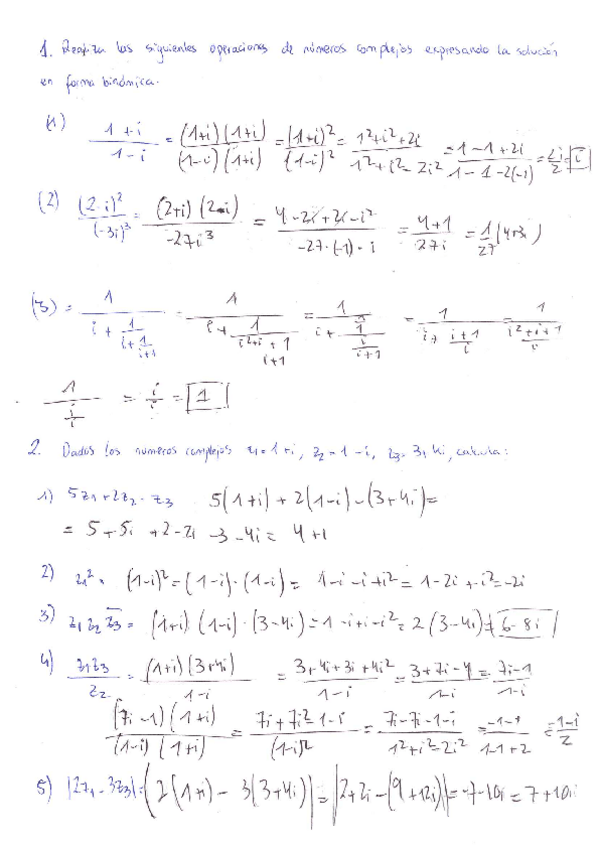 1. Realiza las siguientes operaciones de números complejos expresando la solución
en forma binómica.
(1) (1+i)/(1-i) = (1+i)(1+i)/(1-i)(1+i) = (1+i)²/(1-i)² = (1²+i²+2i)/(1²+i²-2i²) = (1-1+2i)/(1-1-2(-1)) = 2i/2 = i
(2) (2-i)²/(-3i)³ = (2+i)(2-i)/-27i³ = (4-2i+2i-i²)/(-27·(-1)·i) = (4+1)/27i = 1/27
(3) = 1/(i+1/(i+1/(i+1))) = 1/(i+1/((i²+i+1)/(i+1))) = 1/(i+1/(i/(i+1))) = 1/(i+(i+1)/i) = 1/((i²+i+1)/i)
1/(i/i) = i/i = 1
2. Dados los números complejos z1=1+i, z2=1-i, z3=3+4i, calcula:
1) 5z1+2z2-z3 5(1+i)+2(1-i)-(3+4i)=
= 5+5i+2-2i-3-4i = 4
2) (1-i)²=(1-i)·(1-i)= 1-i-i+i²=1-2i+i²=-2i
3) z1 z2 z̅3 = (1+i)(1-i)·(3-4i)=1-i+i-i²=2(3-4i)=6-8i
4) z1z3/z2 = (1+i)(3+4i)/(1-i) = (3+4i+3i+4i²)/(1-i) = (3+7i-4)/(1-i) = (7i-1)/(1-i)
(7i-1)(1+i)/(1-i)(1+i) = (7i+7i² 1-i)/(1-i)² = (7i-7-1-i)/(1²+i²-2i²) = /(1-1+2) = /2
5) |2z1-3z3|=|2(1+i)-3(3+4i)|=|2+2i-(9+12i)|=-7-10i=7+10i